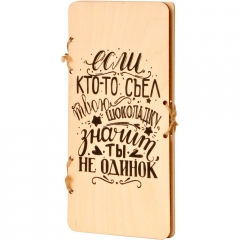 если
кто-то съел
твою шоколадку,
значит
ты
не одинок